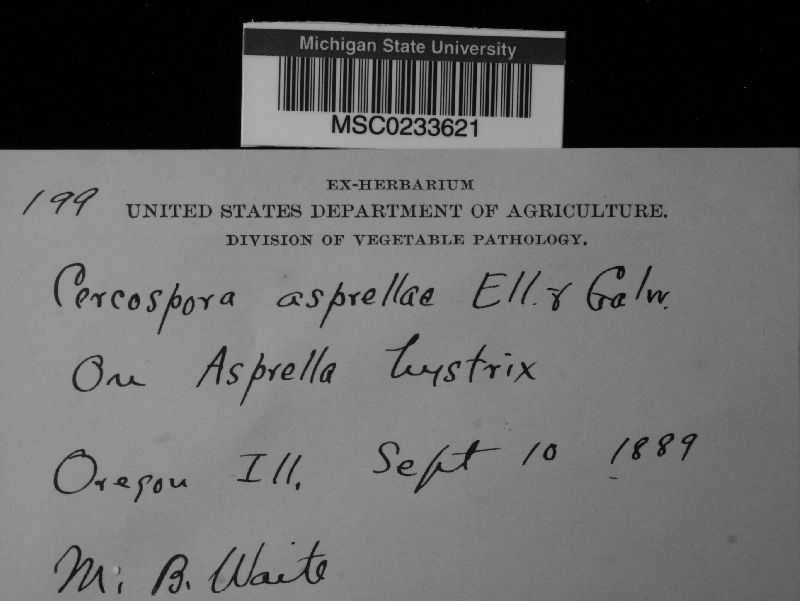 Michigan State University
MSC0233621
EX-HERBARIUM
199 UNITED STATES DEPARTMENT OF AGRICULTURE.
DIVISION OF VEGETABLE PATHOLOGY.
Cercospora asprellae Ell. & Galw.
On Asprella hystrix
Oregon Ill. Sept 10 1889
M. B. Waite